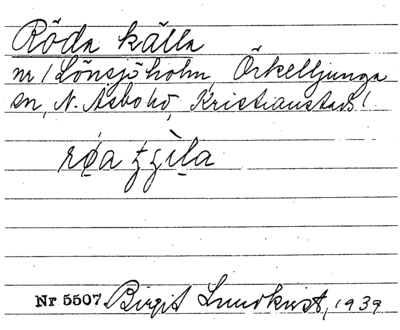 Röda källa
nr / Lönsjöholm, Örkelljunga
sn, N. Åsbo hd, Kristianstads l
røa
Nr 5507 Birgit Lundkvist, 1939